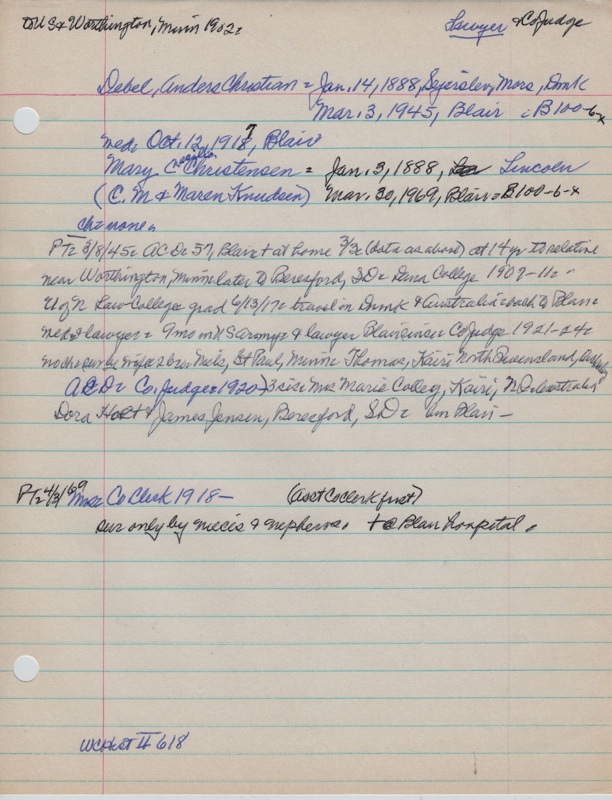 to US & Worthington, Minn 1902= Lawyer & CoJudge
Debel, Anders Christian = Jan. 14, 1888, Sejerslev, Mors, Dmk
Mar. 3, 1945, Blair = B100-6-x
med= Oct. 12, 1918, 7 Blair=
Mary C Christensen = Jan. 3, 1888, Lincoln
(C. M & Maren Knudsen) Mar. 30, 1969, Blair = B100-6-x
ch= none=
PT= 3/8/45= AC D= 57, Blair + at home 3/3= (data as above) at 14 yr to relative
near Worthington, Minn= later to Beresford, SD= Dana College 1907-11=
U of N Law College grad 6/13/17= travel in Dnmk & Australia= back to Blair=
med & lawyer= 9 mo in US army= & lawyer Blair since= CoJudge 1921-24=
no ch= sur by wife= 2 bro= Nels, St Paul, Minn= Thomas, Kairi North Queensland, Australia
AC D= Co. Judge= 1920) 3 sis= Mrs Marie Colley, Kairi, N Q Australia
Dora Holt & James Jensen, Beresford, SD= bur Blair -
PT= 4/3/69 Miss= Co Clerk 1918- (Asst Co Clerk first)
sur only by nieces & nephews. + @ Blair hospital.
WCHist II 618